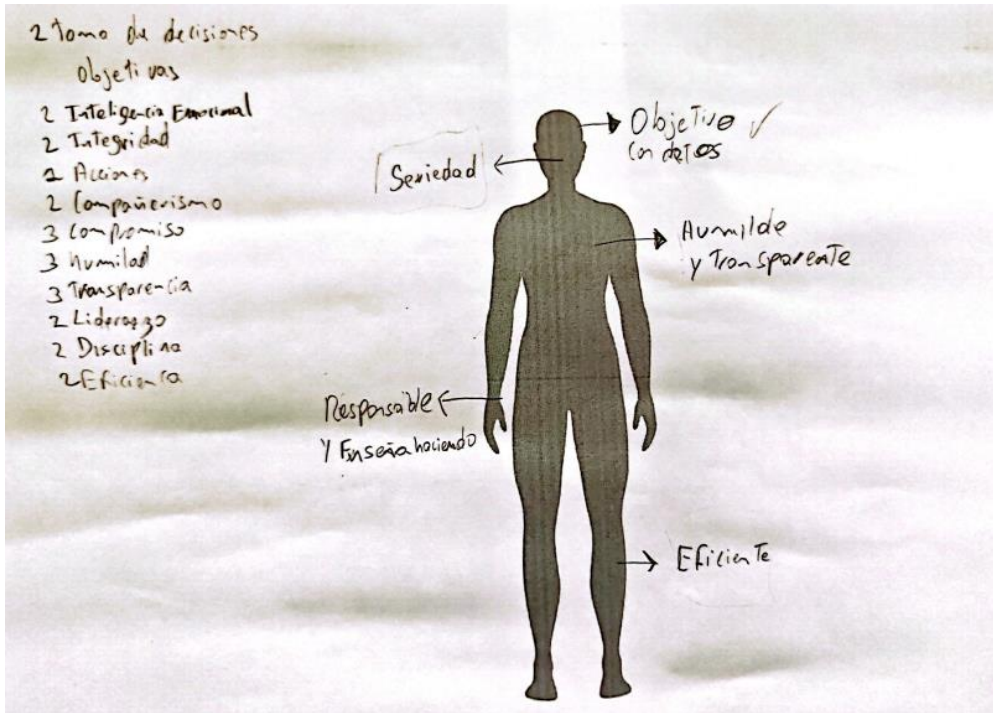 2 Toma de decisiones
Objetivas
2 Inteligencia Emocional
2 Integridad
2 Acciones
2 Compañerismo
3 Compromiso
3 Humilad
3 Transparencia
2 Liderazgo
2 Disciplina
2 Eficiencia
Objetivo ✓
Con datos
Seriedad
Humilde
y Transparente
Responsable
Y Enseña haciendo
Eficiente